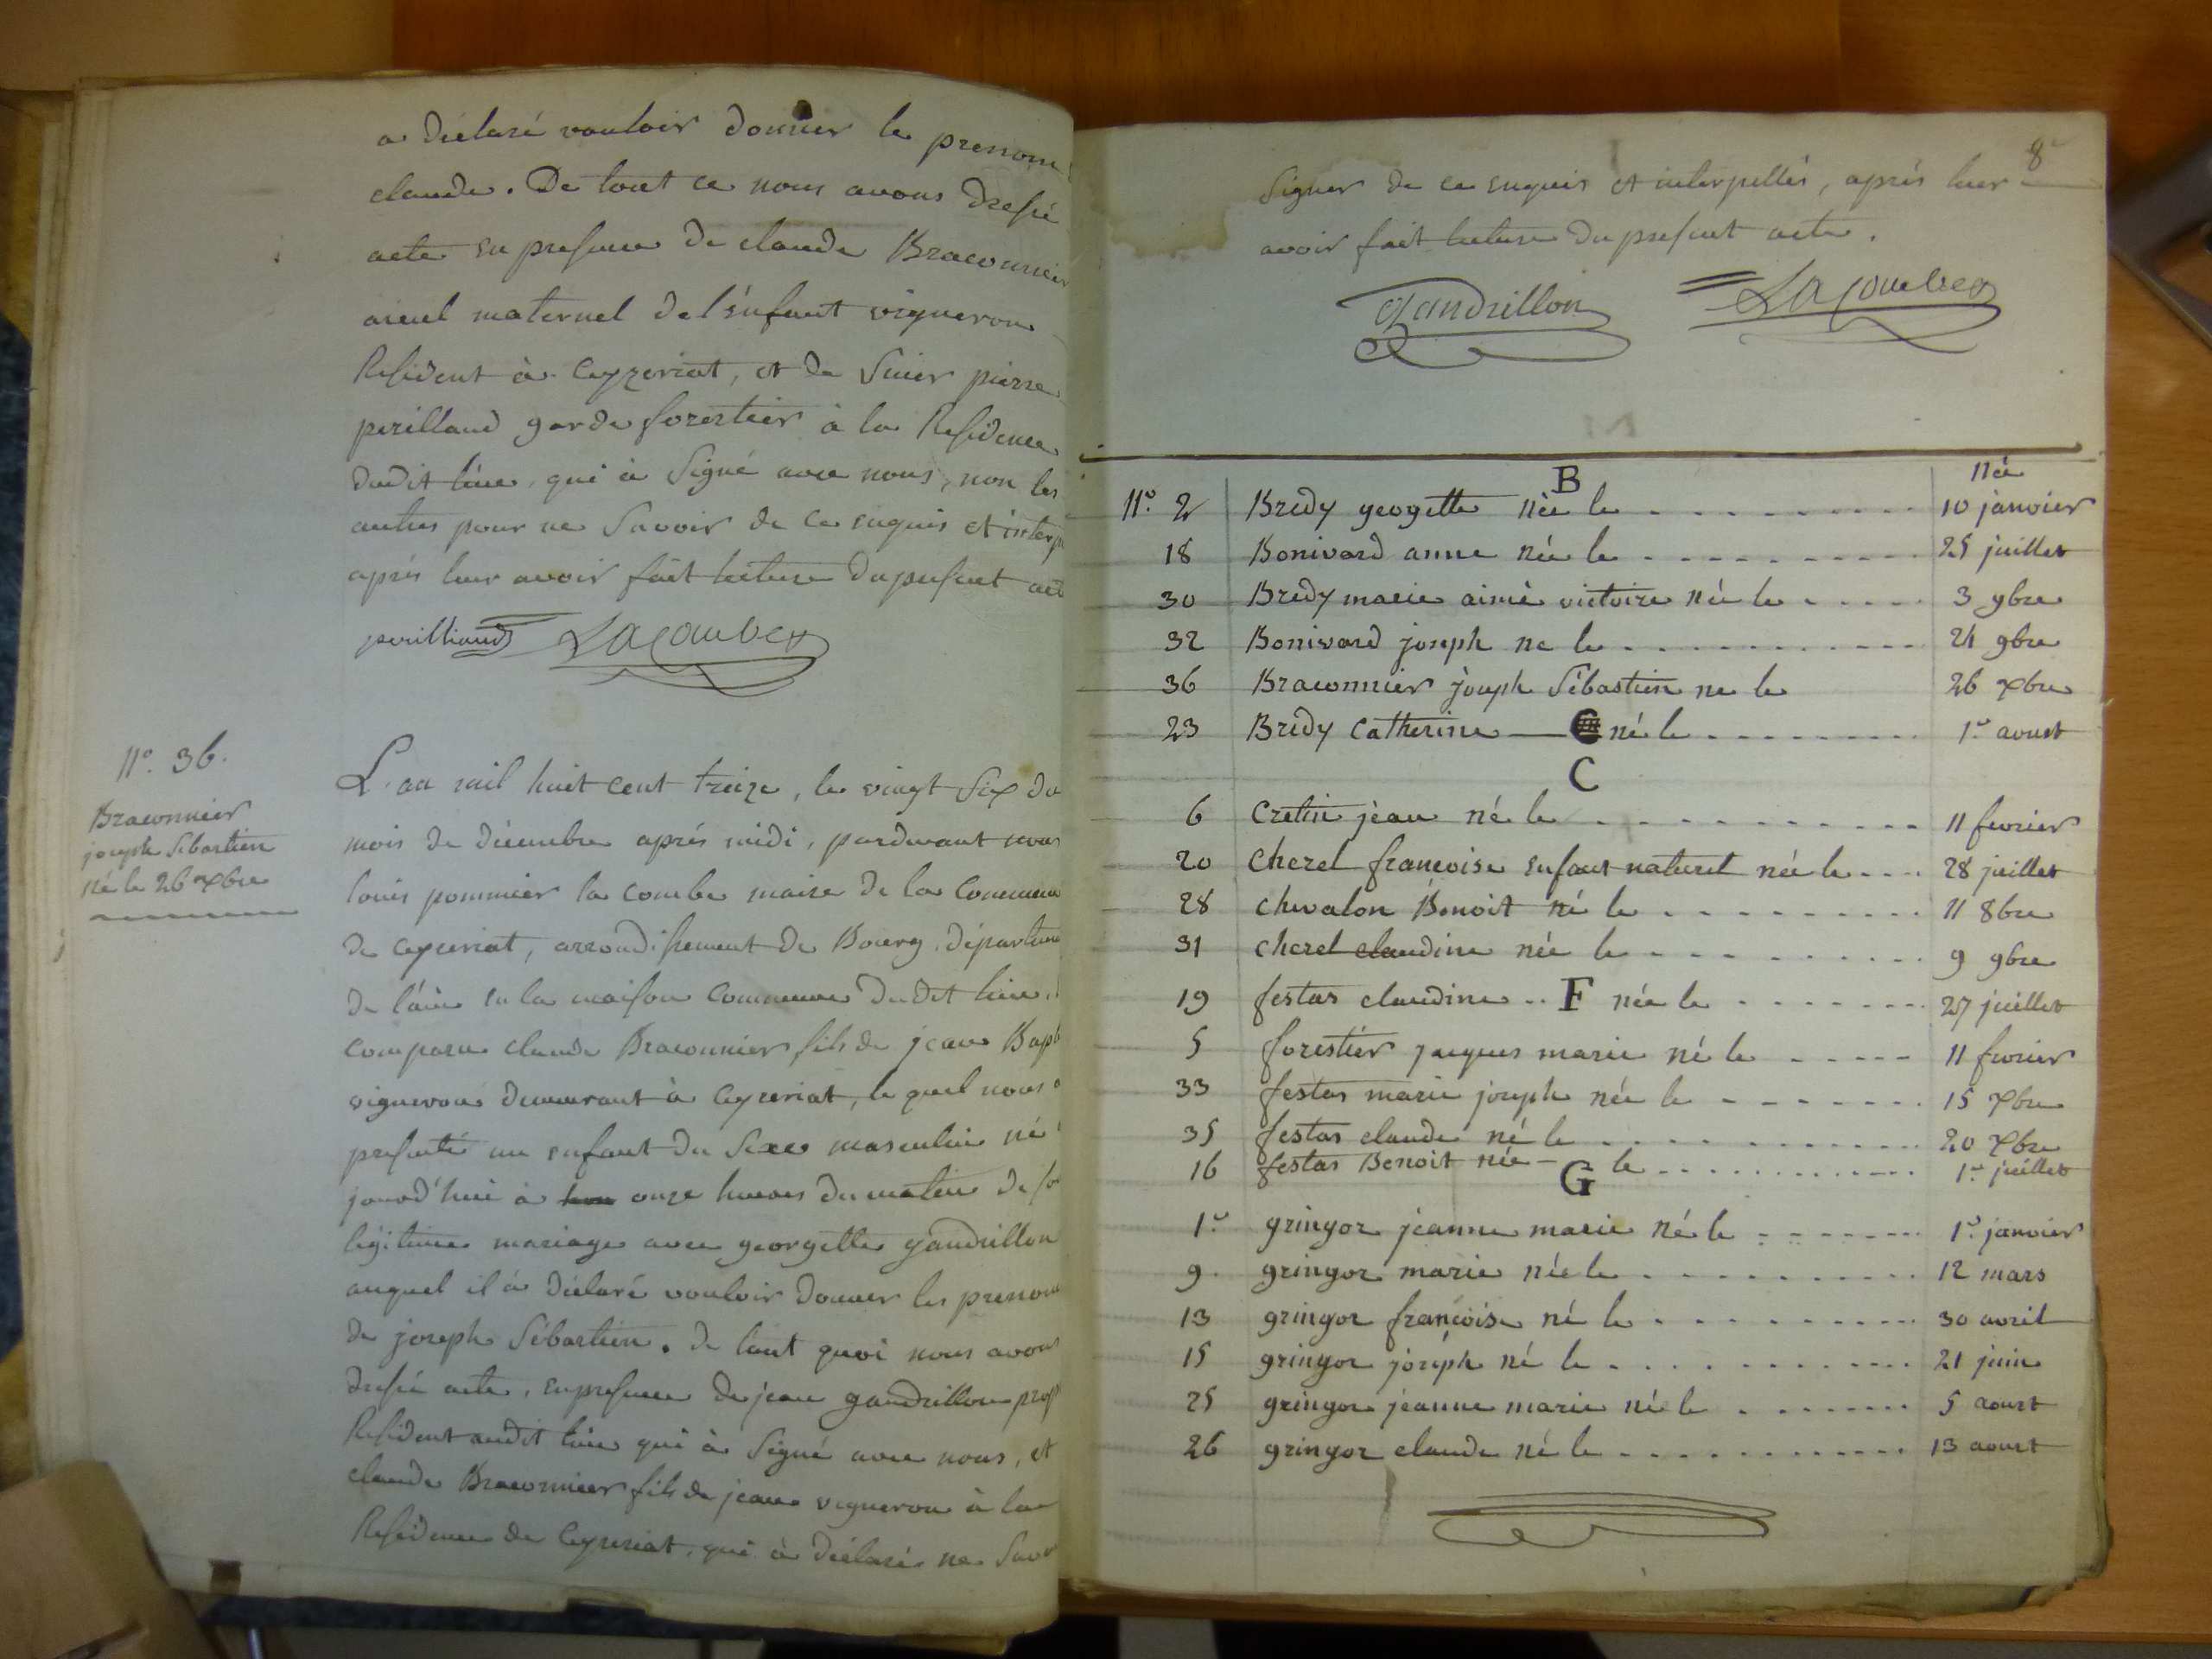 a déclaré vouloir donner le prenom
claude. De tout ce nous avons dressé
acte en presence de claude Braconnier
aieul maternel de l'enfant vigneron
Resident à Ceyzeriat, et de Sieur pierre
perilland garde forestier à la Residence
dudit lieu, qui à Signé avec nous, non les
autres pour ne Savoir de ce enquis et interp
aprés leur avoir fait lecture du present act
perilliand Lacombe
N.° 36.
Braconnier
joseph Sébastien
né le 26 xbre
L'an mil huit cent treize, le vingt Six du
mois de décembre aprés midi, pardevant nous
louis pommier la combe maire de la Commune
de ceyzeriat, arrondissement de Bourg, départeme
de l'ain en la maison Commune dudit lieu,
comparu claude Braconnier fils de jean Bapt
vigneron demeurant à Ceyzeriat, le quel nous a
presenté un enfant du Sexe masculin né
jourd'hui à onze heures du matin de so
légitime mariage avec georgette gandrillon
auquel il à déclaré vouloir donner les prenom
de joseph Sébastien. de tout quoi nous avons
dressé acte, en presence de jean gandrillon prop
Resident audit lieu qui à Signé avec nous, et
claude Braconnier fils de jean vigneron à la
Residence de Ceyzeriat, qui à déclaré ne Savo
8e
Signer de ce enquis et interpellés, aprés leur
avoir fait lecture du present acte.
Gandrillon Lacombe
B née
N.° 2 Bredy geogette née le 10 janvier
18 Bonivard anne née le 25 juillet
30 Bredy marie aimé victoire née le 3 9bre
32 Bonivard joseph ne le 24 9bre
36 Braconnier joseph Sébastien ne le 26 xbre
23 Bredy Catherine né le 1er aoust
C
6 Cretin jean né le 11 fevrier
20 Cherel francoise enfant naturel née le 28 juillet
28 chevalon Benoit né le 11 8bre
31 cherel claudine née le 9 9bre
19 festas claudine .. F née le 27 juillet
5 forestier jacques marie né le 11 fevrier
33 festas marie joseph née le 15 xbre
35 festas claude né le 20 xbre
16 festas Benoit née le 1er juillet
G
1er gringoz jeanne marie né le 1er janvier
9 gringoz marie née le 12 mars
13 gringoz françoise né le 30 avril
15 gringoz joseph né le 21 juin
25 gringoz jeanne marie née le 5 aoust
26 gringoz claude né le 13 aoust